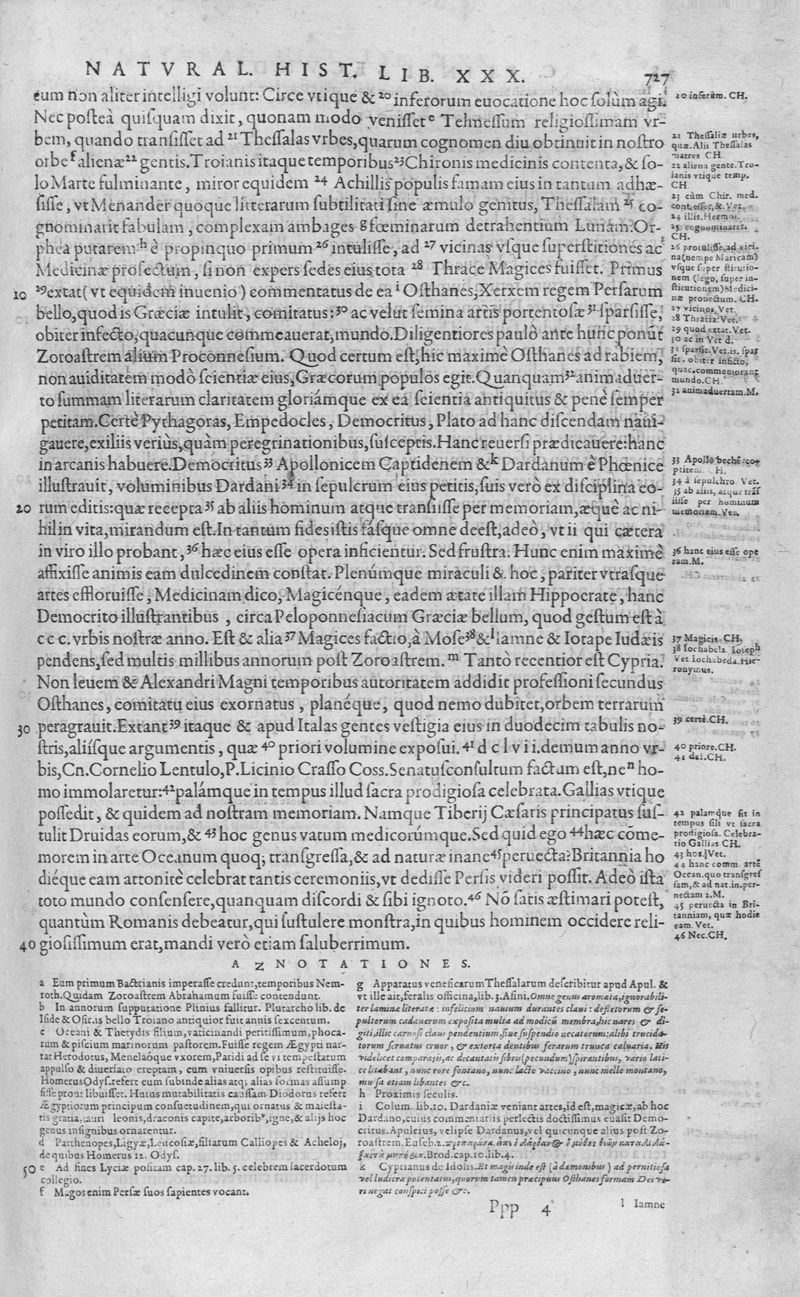 NATVRAL. HIST. LIB. XXX. 727
eum non aliter intelligi volunt: Circe vtique & 20 inferorum euocatione hoc solùm agi.
Nec posteà quisquam dixit, quonam modo venisset e Telmessum religiosissimam vr-
bem, quando transisset ad 21 Thessalas vrbes, quarum cognomen diu obtinuit in nostro
orbe f alienæ 22 gentis. Troianis itaque temporibus 23 Chironis medicinis contenta, & so-
lo Marte fulminante, miror equidem 24 Achillis populis famam eius in tantum adhæ-
sisse, vt Menander quoque litterarum subtilitati sine æmulo genitus, Thessalam 25 co-
gnominarit fabulam, complexam ambages g fœminarum detrahentium Lunam. Or-
phea putarem h è propinquo primum 26 intulisse, ad 27 vicinas vsque superstitiones ac
Medicinæ profectum, si non expers sedes eius tota 28 Thrace Magices fuisset. Primus
10 29 extat (vt equidem inuenio) commentatus de ea i Osthanes, Xerxem regem Persarum
bello, quod is Græciæ intulit, comitatus: 30 ac velut semina artis portentosæ 31 sparsisse,
obiter infecto, quacunque commeauerat, mundo. Diligentiores paulò ante hunc ponūt
Zoroastrem alium Proconnesium. Quod certum est, hic maximè Osthanes ad rabiem,
non auiditatem modò scientiæ eius, Græcorum populos egit. Quanquam 32 animaduer-
to summam literarum claritatem gloriámque ex ea scientia antiquitùs & penè semper
petitam. Certè Pythagoras, Empedocles, Democritus, Plato ad hanc discendam naui-
gauere, exiliis veriùs, quàm peregrinationibus, susceptis. Hanc reuersi prædicauere: hanc
in arcanis habuere. Democritus 33 Apollonicem Captidenem & k Dardanum è Phœnice
illustrauit, voluminibus Dardani 34 in sepulcrum eius petitis, suis verò ex disciplina eo-
20 rum editis: quæ recepta 35 ab aliis hominum atque transisse per memoriam, æquè ac ni-
hil in vita, mirandum est. In tantum fides istis fásque omne deest, adeò, vt ii qui cætera
in viro illo probant, 36 hæc eius esse opera inficientur. Sed frustra. Hunc enim maximè
affixisse animis eam dulcedinem constat. Plenúmque miraculi & hoc, pariter vtrasque
artes effloruisse, Medicinam dico, Magicénque, eadem ætate illam Hippocrate, hanc
Democrito illustrantibus, circa Peloponnesiacum Græciæ bellum, quod gestum est à
ccc. vrbis nostræ anno. Est & alia 37 Magices factio, à Mose 38 & l Iamne & Iotape Iudæis
pendens, sed multis millibus annorum post Zoroastrem. m Tantò recentior est Cypria.
Non leuem & Alexandri Magni temporibus autoritatem addidit professioni secundus
Osthanes, comitatu eius exornatus, planéque, quod nemo dubitet, orbem terrarum
30 peragrauit. Extant 39 itaque & apud Italas gentes vestigia eius in duodecim tabulis no-
stris, aliisque argumentis, quæ 40 priori volumine exposui. 41 d c l v i i. demum anno vr-
bis, Cn. Cornelio Lentulo, P. Licinio Crasso Coss. Senatusconsultum factum est, ne n ho-
mo immolaretur: 42 palámque in tempus illud sacra prodigiosa celebrata. Gallias vtique
possedit, & quidem ad nostram memoriam. Namque Tiberij Cæsaris principatus sus-
tulit Druidas eorum, & 43 hoc genus vatum medicorúmque. Sed quid ego 44 hæc come-
morem in arte Oceanum quoq; transgressa, & ad naturæ inane 45 peruecta? Britannia ho
diéque eam attonitè celebrat tantis ceremoniis, vt dedisse Persis videri possit. Adeò ista
toto mundo consensere, quanquam discordi & sibi ignoto. 46 Nō satis æstimari potest,
quantùm Romanis debeatur, qui sustulere monstra, in quibus hominem occidere reli-
40 giosissimum erat, mandi verò etiam saluberrimum.
20 inferûm. CH.
21 Thessaliæ urbes,
quæ. Alii Thessalas
matres CH.
22 aliena gente. Tro-
ianis vtique temp.
CH
23 cùm Chir. med.
cont. esset, &. Vet.
24 illis. Hermo.
25 cognominaret.
CH.
26 processisse, ad vici-
na (nempe Maricam)
vsque super stitutio-
nem (lego, super in-
stitutionem) Medici-
næ prouectum. CH.
27 vicinos. Vet.
28 Thracia Vet.
29 quod extat. Vet.
30 ac in Vet d.
31 sparsit. Vet. is. spar
sit. obiter infecto,
quac. commemorant
mundo. CH.
32 animaduertam. M.
33 Apollobechē cop
ptitem. H.
34 à sepulchro Vet.
35 ab aliis, atque trās
iisse per hominum
memoriam. Vet.
36 hanc eius esse ope
ram. M.
37 Magicis. CH.
38 Iochabela Ioseph
Vet Iochabeda. Hie-
ronymus.
39 certè. CH.
40 priore. CH.
41 dcl. CH.
42 palamque sit in
tempus illi vt sacra
prodigiosa. Celebra-
tio Gallias CH.
43 hos. Vet.
44 hanc comm. artē
Ocean. quo transgres
sam, & ad nat. in. per-
nectam 2. M.
45 peructa in Bri-
tanniam, quæ hodie
eam. Vet.
46 Nec. CH.
ANNOTATIONES.
a Eum primum Bactrianis imperasse credunt, temporibus Nem-
roth. Quidam Zoroastrem Abrahamum fuisse contendunt.
b In annorum supputatione Plinius fallitur. Plutarcho lib. de
Iside & Osir. is bello Troiano antiquior fuit annis sexcentum.
c Oceani & Thetydis filium, vaticinandi peritissimum, phoca-
rum & piscium marinorum pastorem. Fuisse regem Ægypti nar-
rat Herodotus, Menelaóque vxorem, Paridi ad se vi tempestatum
appulso & diuersato ereptam, cum vniuersis opibus restituisse.
Homerus Odys. refert eum subinde alias atq; alias formas assump
sisse prout libuisset. Huius mutabilitatis caussam Diodorus refert
Ægyptiorum principum consuetudinem, qui ornatus & maiesta-
tis gratia, tauri leonis, draconis capite, arborib⁹, igne, & alijs hoc
genus insignibus ornarentur.
d Parthenopes, Ligyæ, Leucosiæ, filiarum Calliopes & Acheloj,
de quibus Homerus 12. Odys.
50 e Ad fines Lyciæ positam cap. 27. lib. 5. celebrem sacerdotum
collegio.
f Magos enim Persæ suos sapientes vocant.
g Apparatus veneficarum Thessalarum describitur apud Apul. &
vt ille ait, feralis officina, lib. 3. Asini, Omne genus aromata, ignorabili-
ter lamine literatæ: infelicium nauium durantes claui: defletorum & se-
pultorum cadauerum exposita multa ad modicū membra, hic nares & di-
giti, illic carnosi claui pendentium, siue suspendio necatorum: alibi trucida-
torum seruatus cruor, & extorta dentibus ferarum trunca caluaria. His
videlicet comparatis, ac decantatis fibris (pecundum) spirantibus, vario lati-
ce litabant, nunc rore fontano, nunc lacte vaccino, nunc melle montano,
mulsa etiam libantes &c.
h Proximis seculis.
i Colum. lib. 10. Dardaniæ veniant artes, id est, magicæ, ab hoc
Dardano, cuius commentariis perfectis doctissimus euasit Demo-
critus. Apuleius, velipse Dardanus, vel quicunque alius post Zo-
roastrem. Euseb. 2.
Brod. cap. 10. lib. 4.
k Cyprianus de Idolis. Et magis inde est (à dæmonibus) ad perniciosa
vel ludicra potentatus, quorum tamen præcipuus Osthanes formam Dei ve-
ri negat conspici posse &c.
Ppp 4
l Iamne